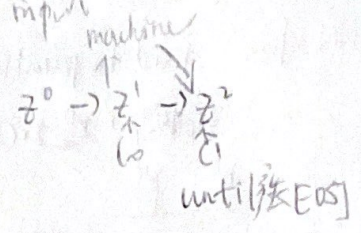 input
machine
z⁰ → z¹ → z²
c₀ c₁
until [EOS]